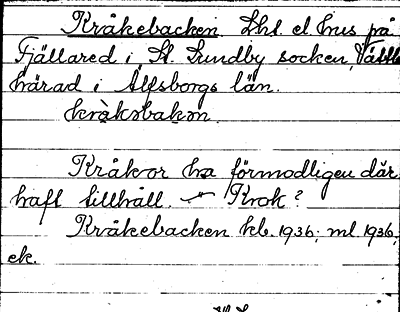 Kråkebacken. Lht. el. hus på
Fjällared i St. Lundby socken, Vättle
härad i Älfsborgs län.
kràkəbakən.
Kråkor ha förmodligen där
haft tillhåll. — Krok?
Kråkebacken kb. 1936; ml. 1936,
ek.